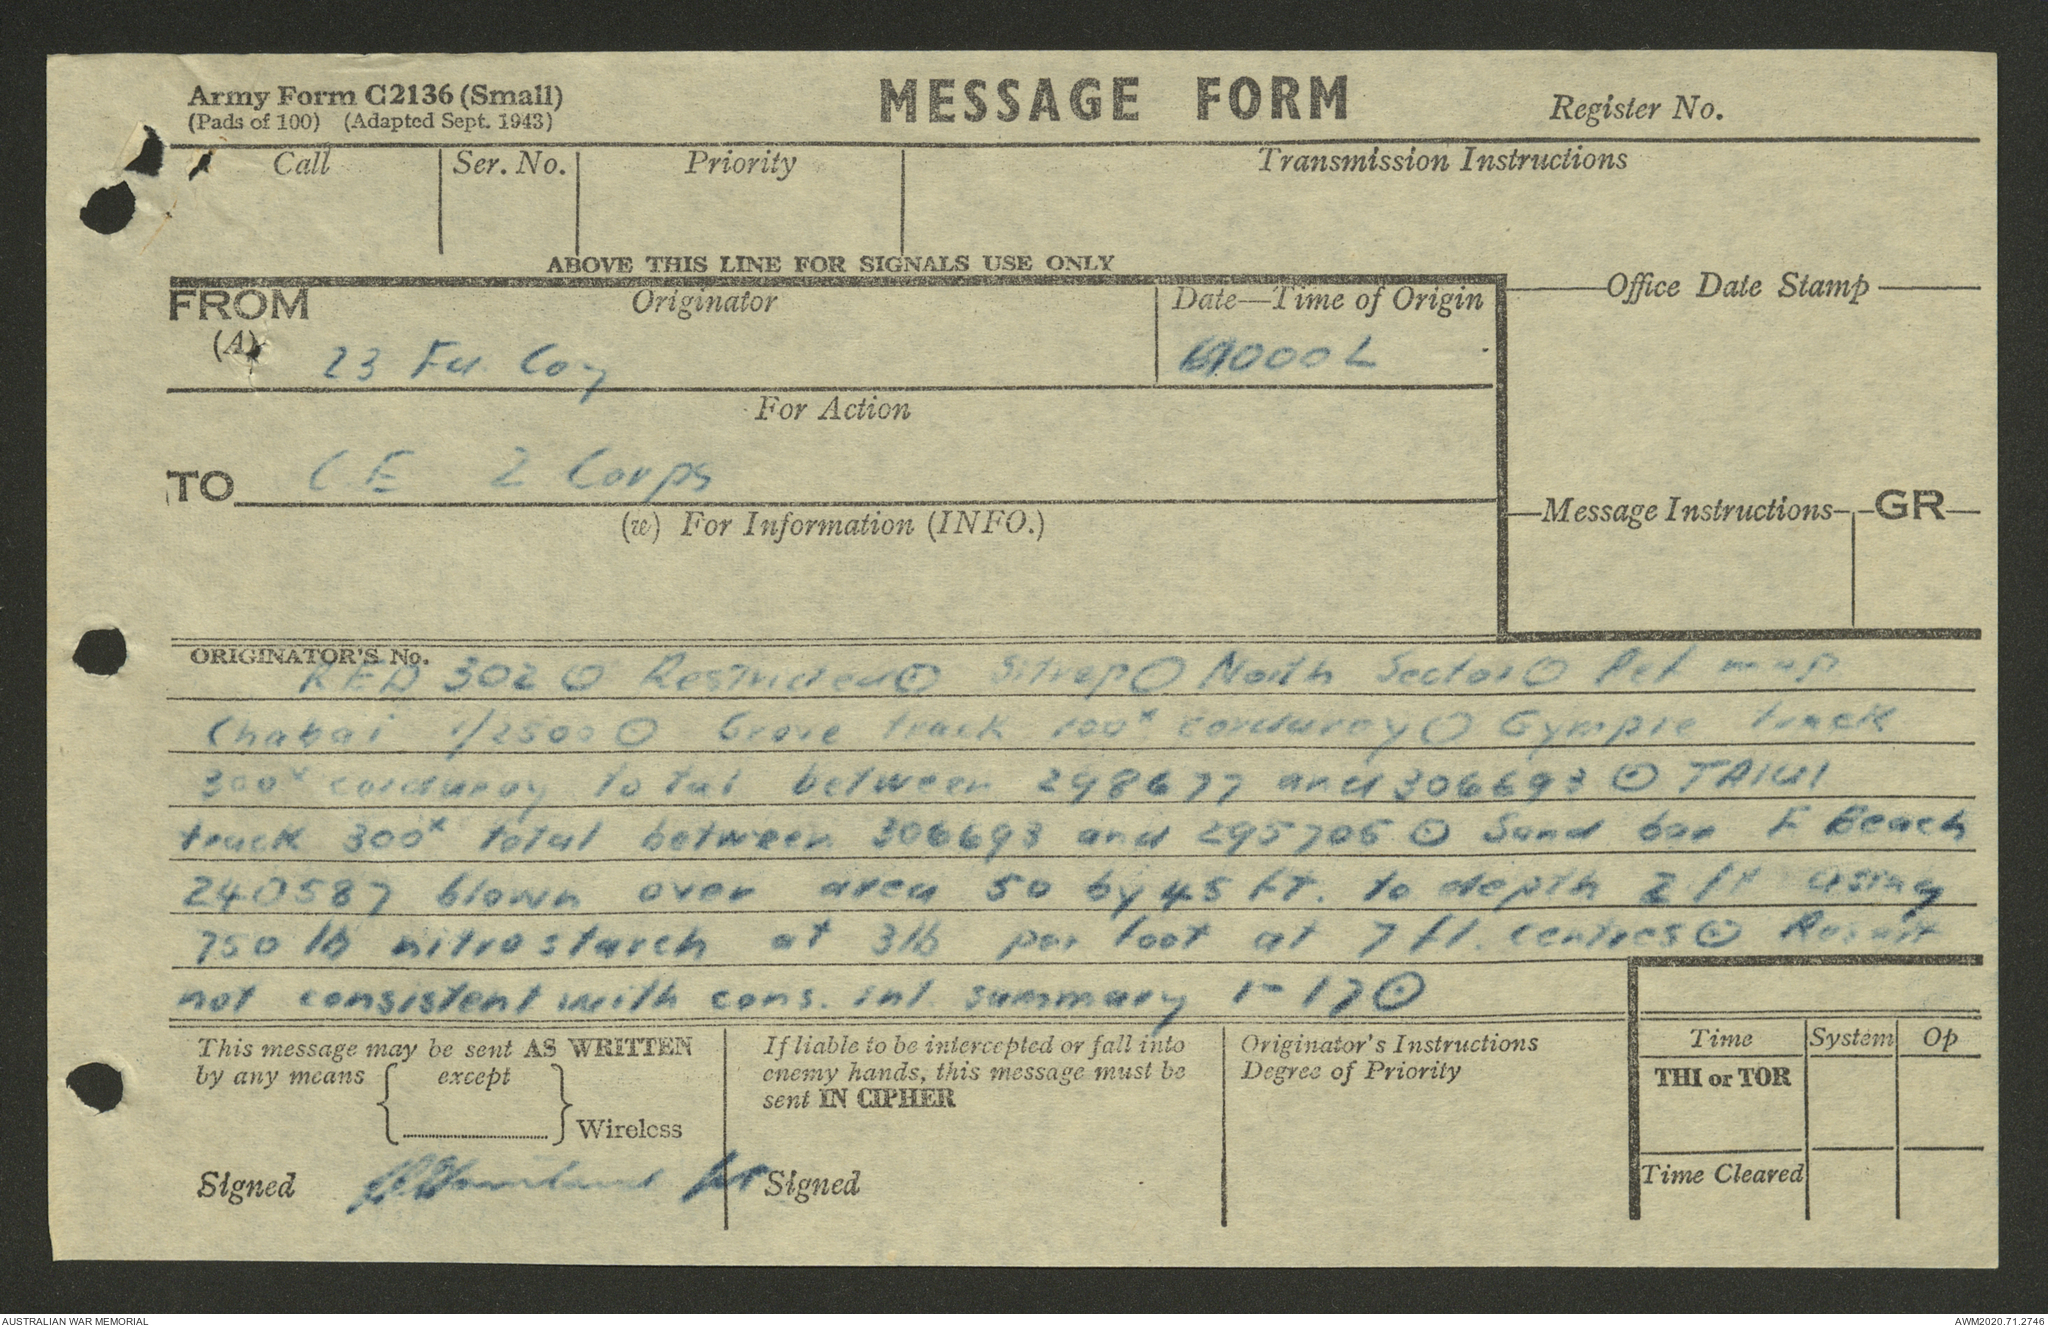 Army Form C2136 (Small)
(Pads of 100) (Adapted Sept. 1943)
MESSAGE FORM
Register No.
Call Ser. No. Priority Transmission Instructions
ABOVE THIS LINE FOR SIGNALS USE ONLY
FROM Originator Date—Time of Origin Office Date Stamp
(A)
23 Fd. Coy 000L
For Action
TO CE 2 Corps
Message Instructions GR
(w) For Information (INFO.)
ORIGINATOR'S No.
RED 302 ⊙ Restricted ⊙ Sitrep O North Sector O Ref map
Chabai 1/25000 track 100ˣ corduroy O Gympie track
300ˣ corduroy total between 298677 and 306693 ⊙
track 300ˣ total between 306693 and 295705 ⊙ Sand bar E Beach
240587 blown over area 50 by 45 ft. to depth 2 ft using
750 lb nitrostarch at 3lb per foot at 7 ft. centres ⊙ Result
not consistent with cons. int. summary ⊙
This message may be sent AS WRITTEN
by any means { except
} Wireless
If liable to be intercepted or fall into
enemy hands, this message must be
sent IN CIPHER
Originator's Instructions
Degree of Priority
Time System Op
THI or TOR
Time Cleared
Signed
Signed
AUSTRALIAN WAR MEMORIAL
AWM2020.71.2746